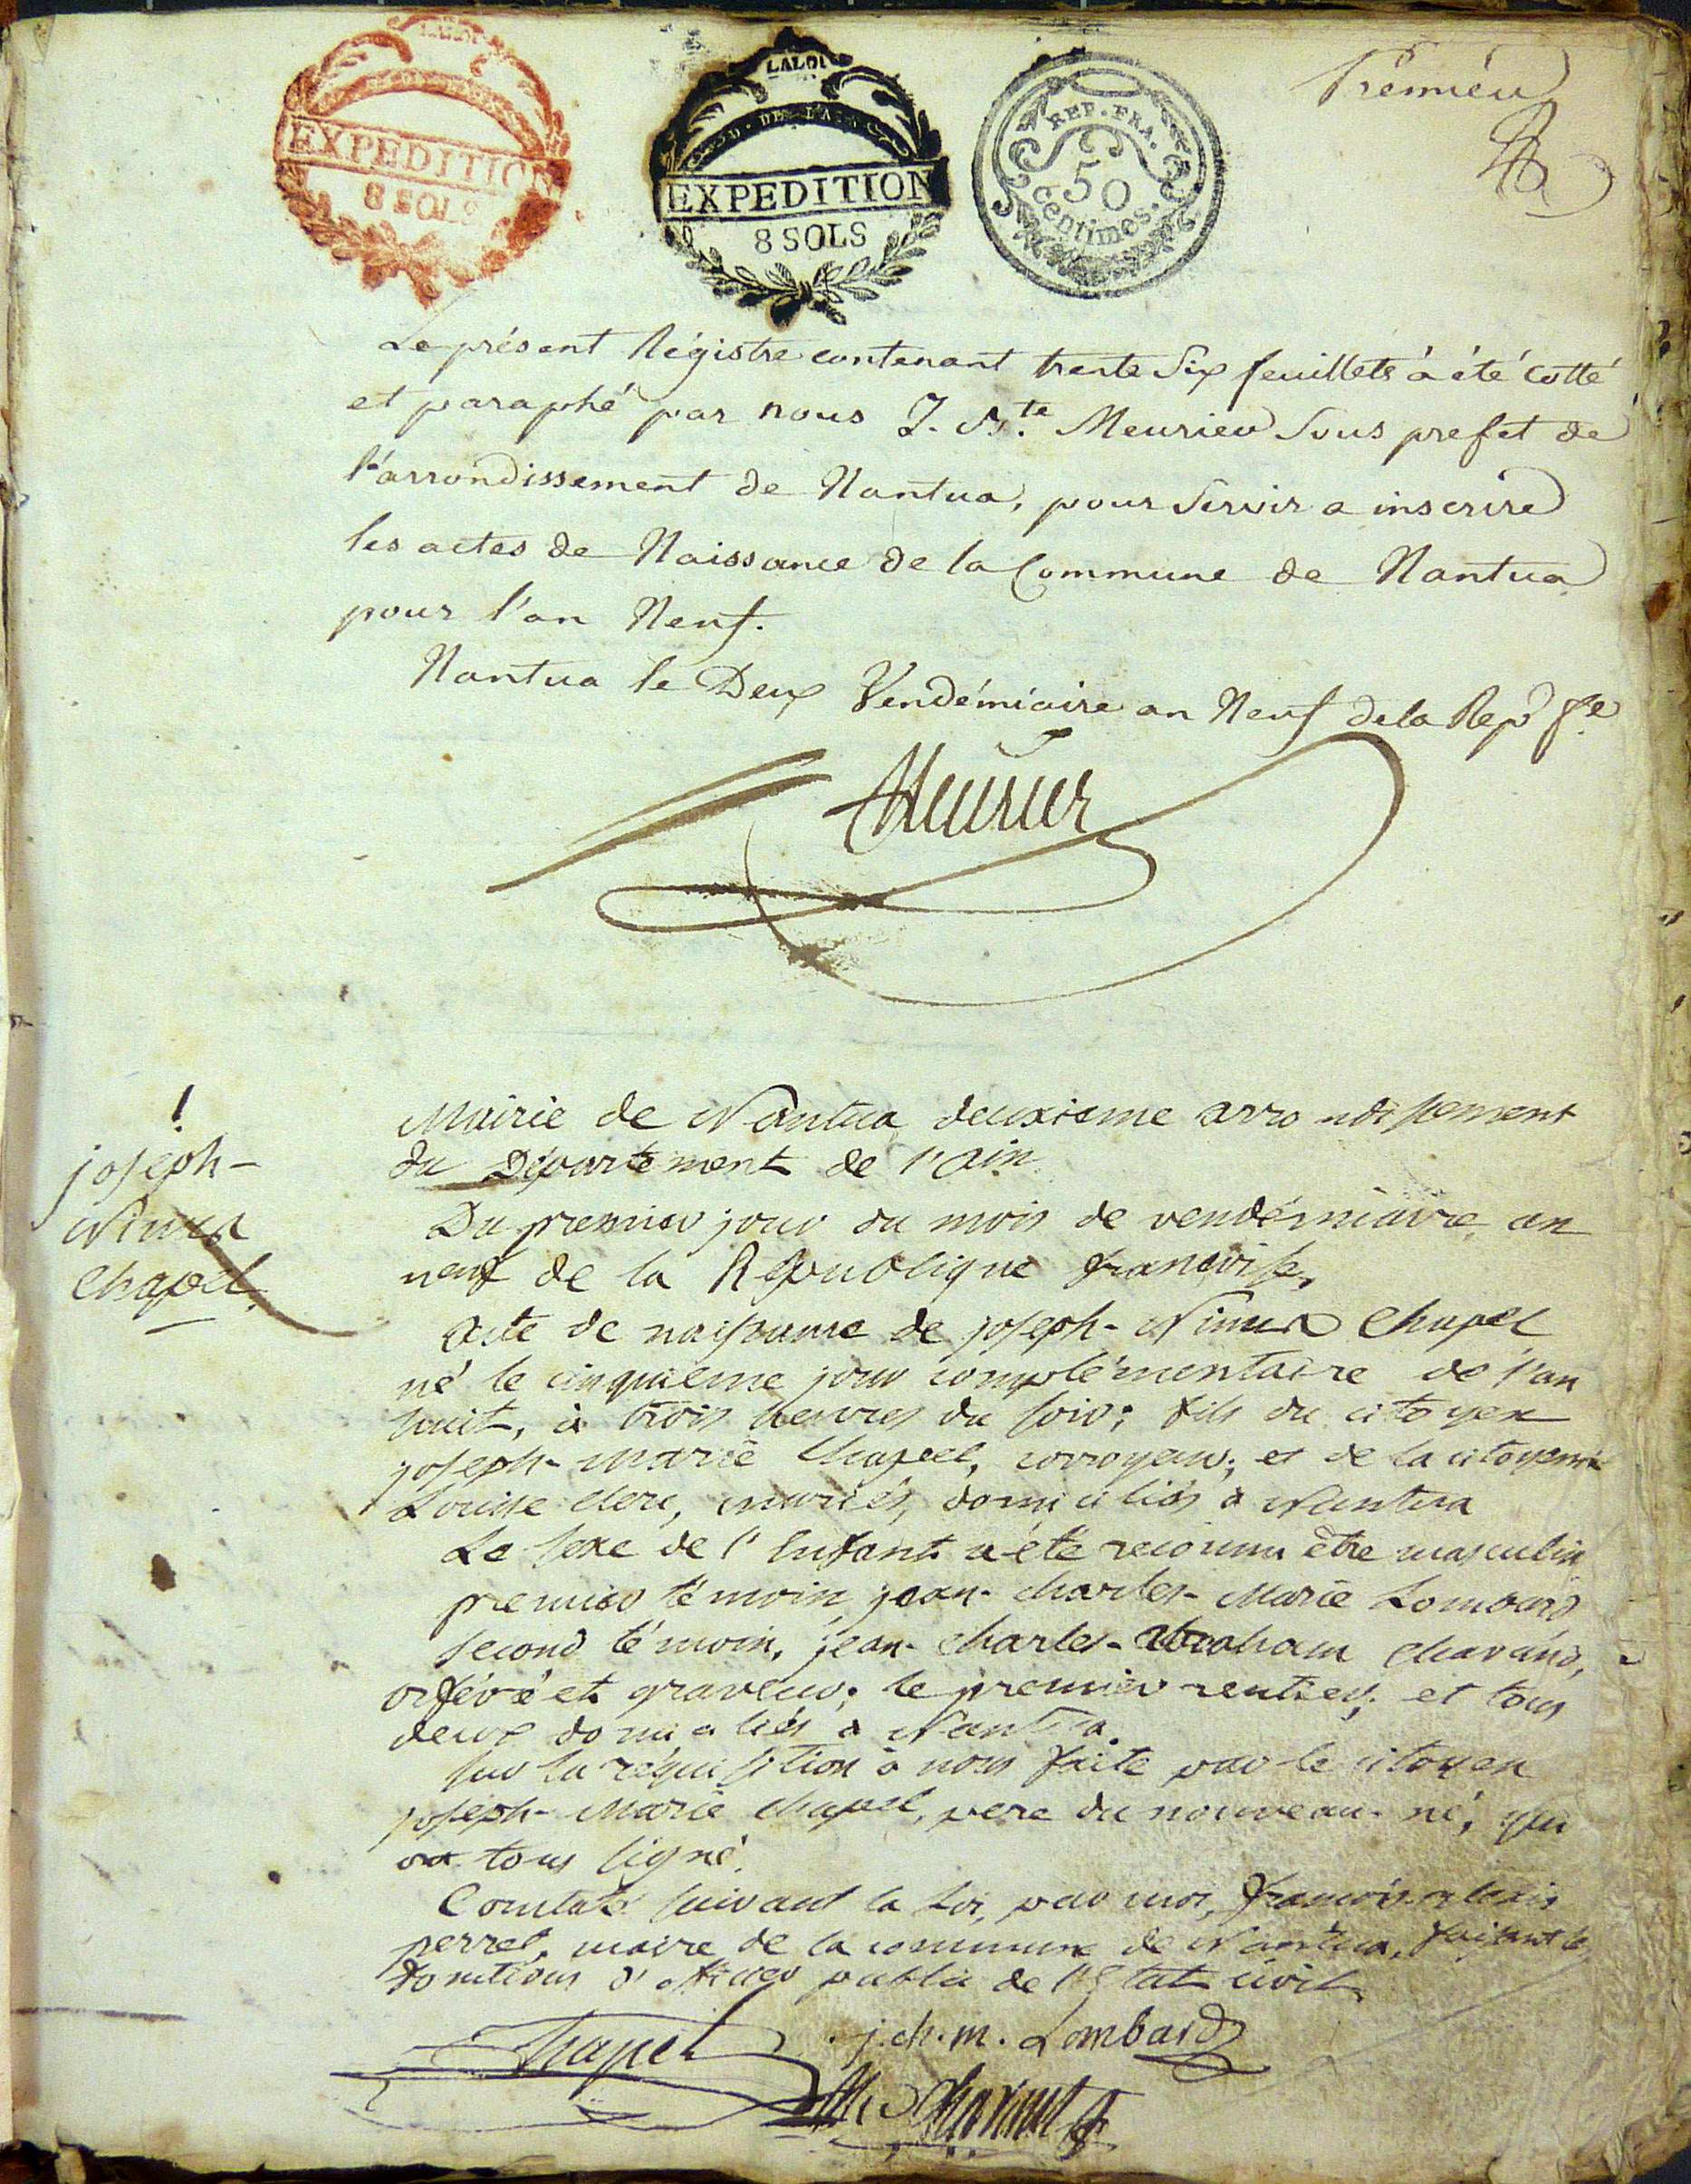 LALOI
EXPEDITION
8 SOLS
LALOI
EXPEDITION
8 SOLS
REP. FRA.
50
centimes.
Premier
Le présent Régistre contenant trente Six feuillets à été cotté
et paraphé par nous J. Bte. Meurier Sous prefet de
l'arrondissement de Nantua, pour Servir a inscrire
les actes de Naissance de la Commune de Nantua
pour l'an Neuf.
Nantua le Deux Vendémiaire an Neuf de la Rep. fe
Meurier
1
joseph-
Chapel.
Mairie de Nantua deuxieme arrondissement
du Département de l'ain
Du premier jour du mois de vendémiaire, an
neuf de la République francoise,
Acte de naissance de joseph- Chapel
né le cinquième jour complémentaire de l'an
huit, à trois heures du soir; fils du citoyen
joseph-marie Chapel, corroyeur; et de la citoyenne
Louise Clerc, mariés, domiciliés à Nantua
Le sexe de l'Enfant a été reconnu être masculin
premier témoin, jean-charles-Marie Lombard
second témoin, jean-charles-abraham Chavand,
orfévré et graveur; le premier rentier; et tous
deux domiciliés à Nantua.
sur la réquisition à nous faite par le citoyen
joseph-Marie Chapel, pere du nouveau-né, qui
ont tous signé.
Constaté suivant la Loi, par moi, francois-alexis
perret, maire de la commune de Nantua, faisant les
fonctions d'officier public de l'Etat civil
Chapel
j. ch. m. Lombard